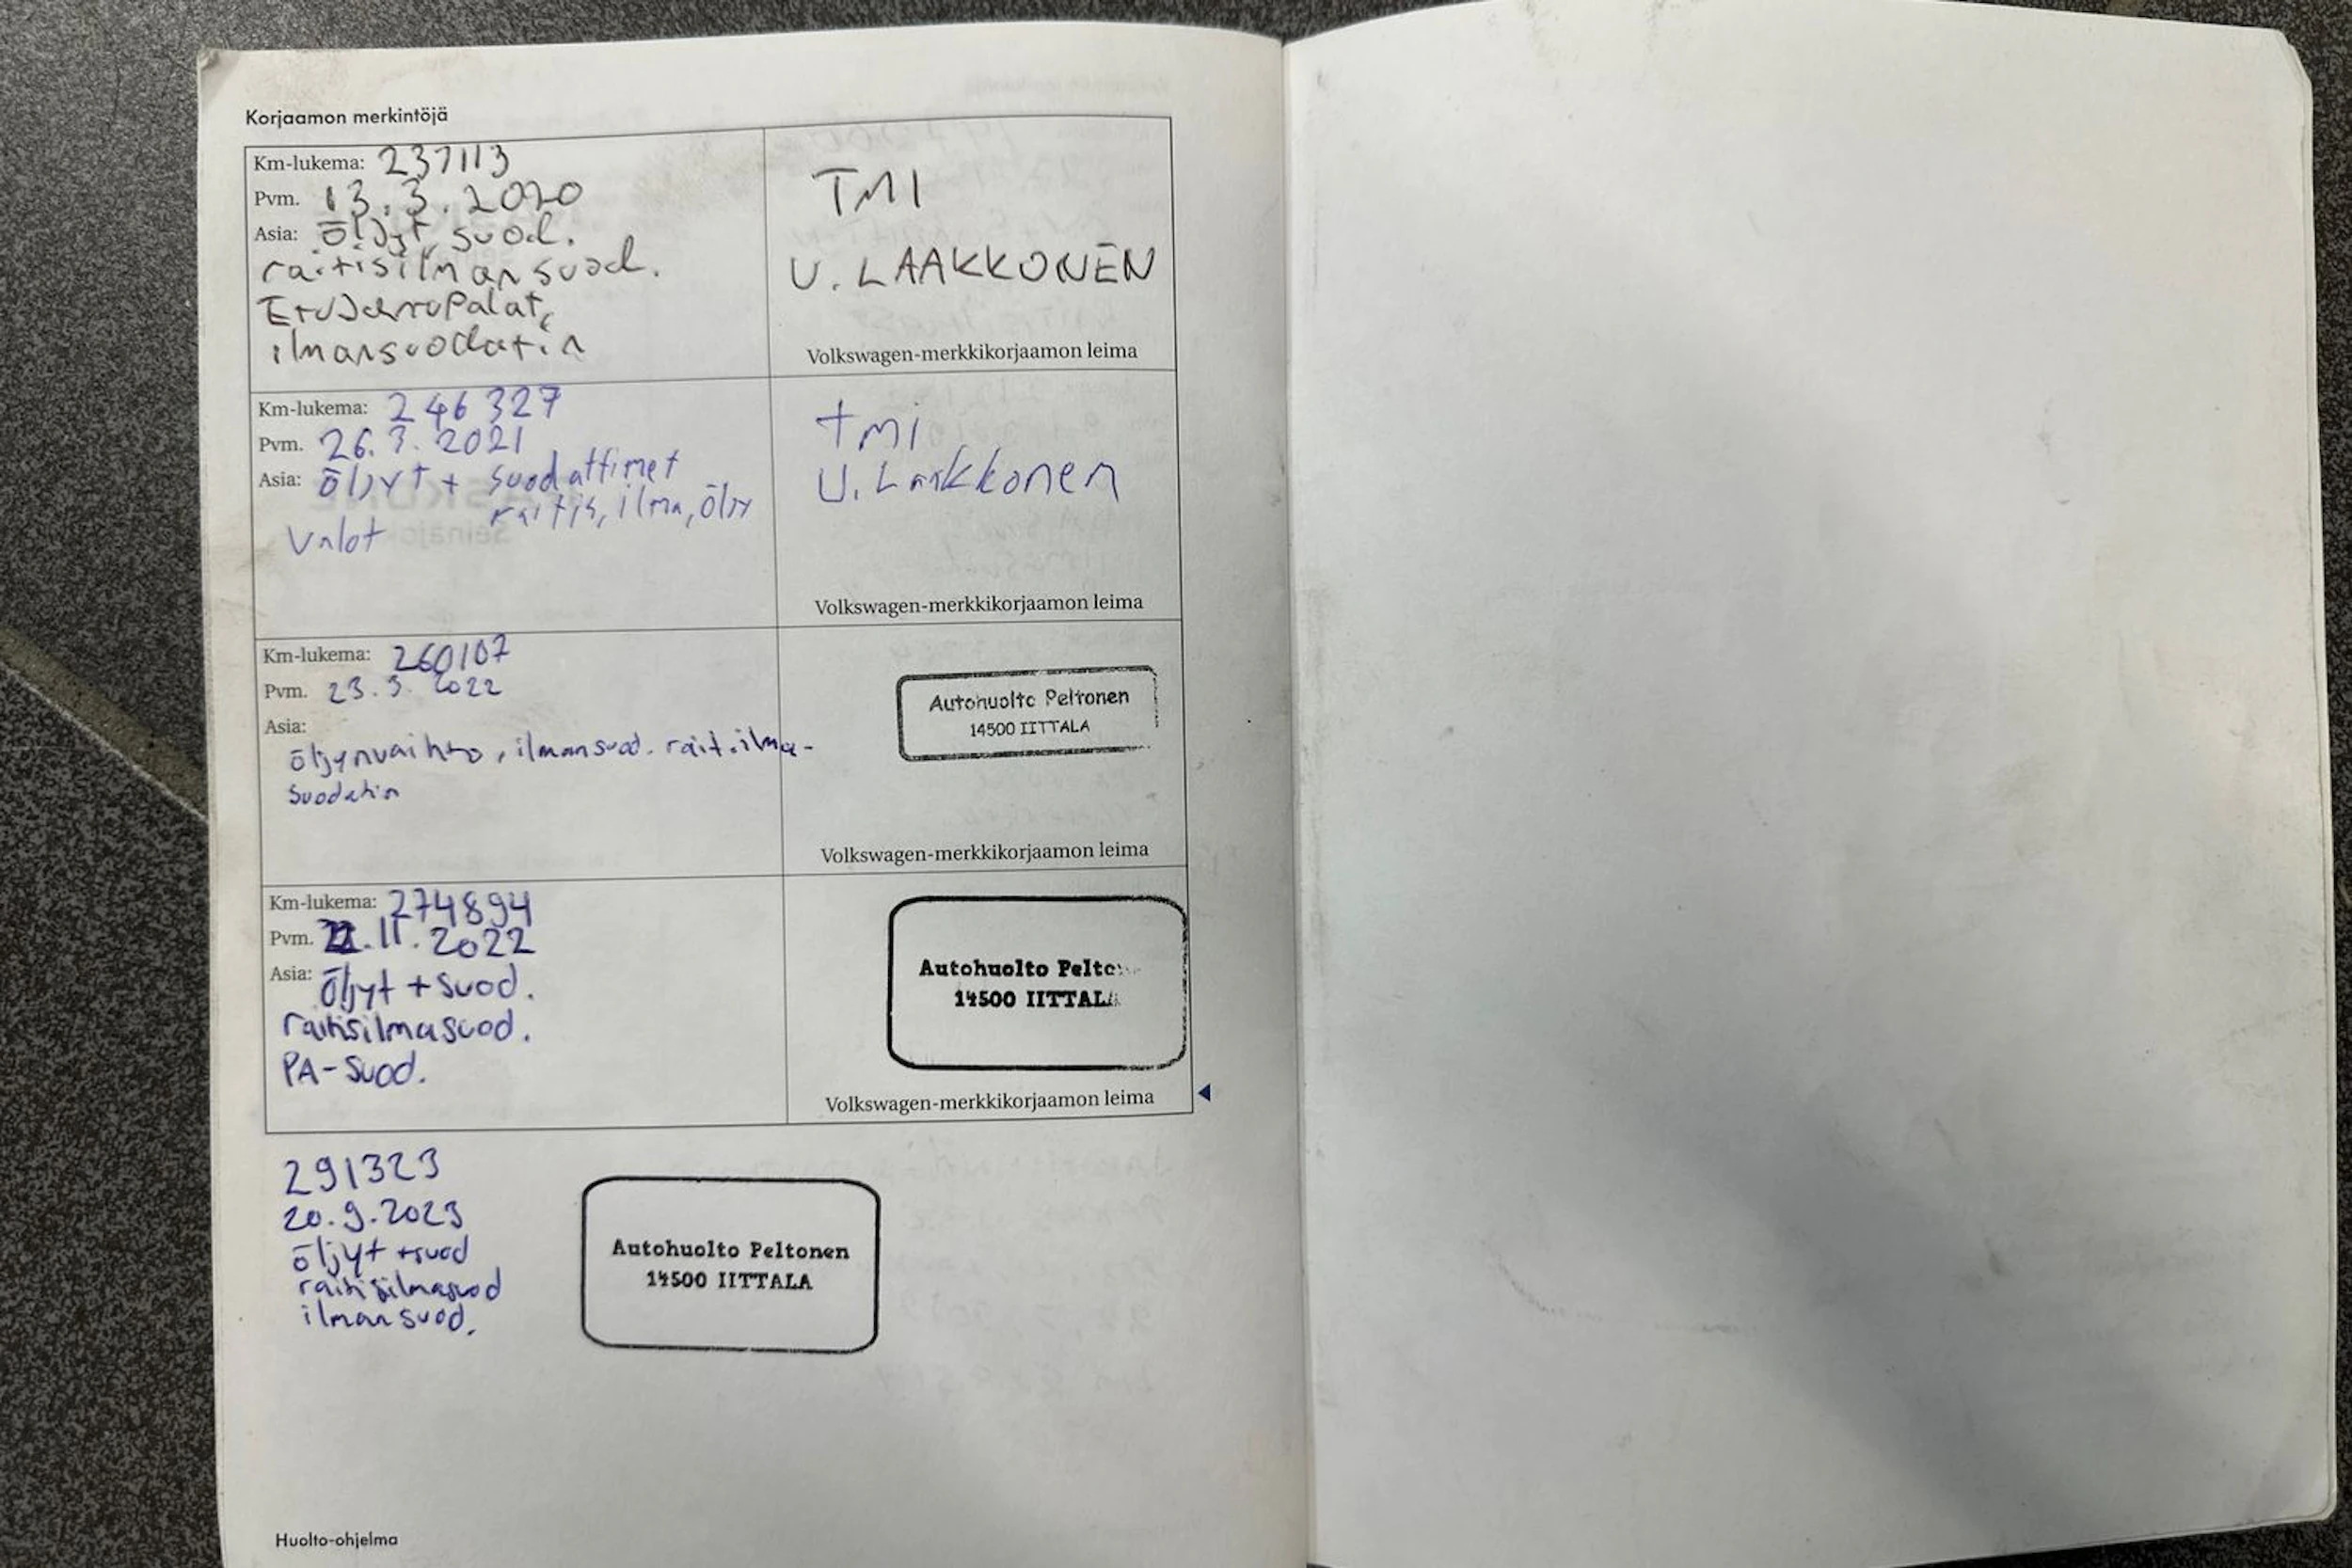 Korjaamon merkintöjä
Km-lukema: 237113
Pvm. 13.3.2020
Asia: öljyt, suod.
raitisilmansuod.
Etujarrupalat,
ilmansuodatin
TMI
U. LAAKKONEN
Volkswagen-merkkikorjaamon leima
Km-lukema: 246327
Pvm. 26.3.2021
Asia: öljyt + suodattimet
raitis, ilma, öljy
Valot
tmi
U. Laakkonen
Volkswagen-merkkikorjaamon leima
Km-lukema: 260107
Pvm. 23.3.2022
Asia:
öljynvaihto, ilmansuod. rait.ilma-
suodatin
Autohuolto Peltonen
14500 IITTALA
Volkswagen-merkkikorjaamon leima
Km-lukema: 274894
Pvm. 11.2022
Asia: öljyt + suod.
raitisilmasuod.
PA-suod.
Autohuolto Pelto
14500 IITTALA
Volkswagen-merkkikorjaamon leima
291323
20.9.2023
öljyt +suod
raitisilmasuod
ilmansuod.
Autohuolto Peltonen
14500 IITTALA
Huolto-ohjelma